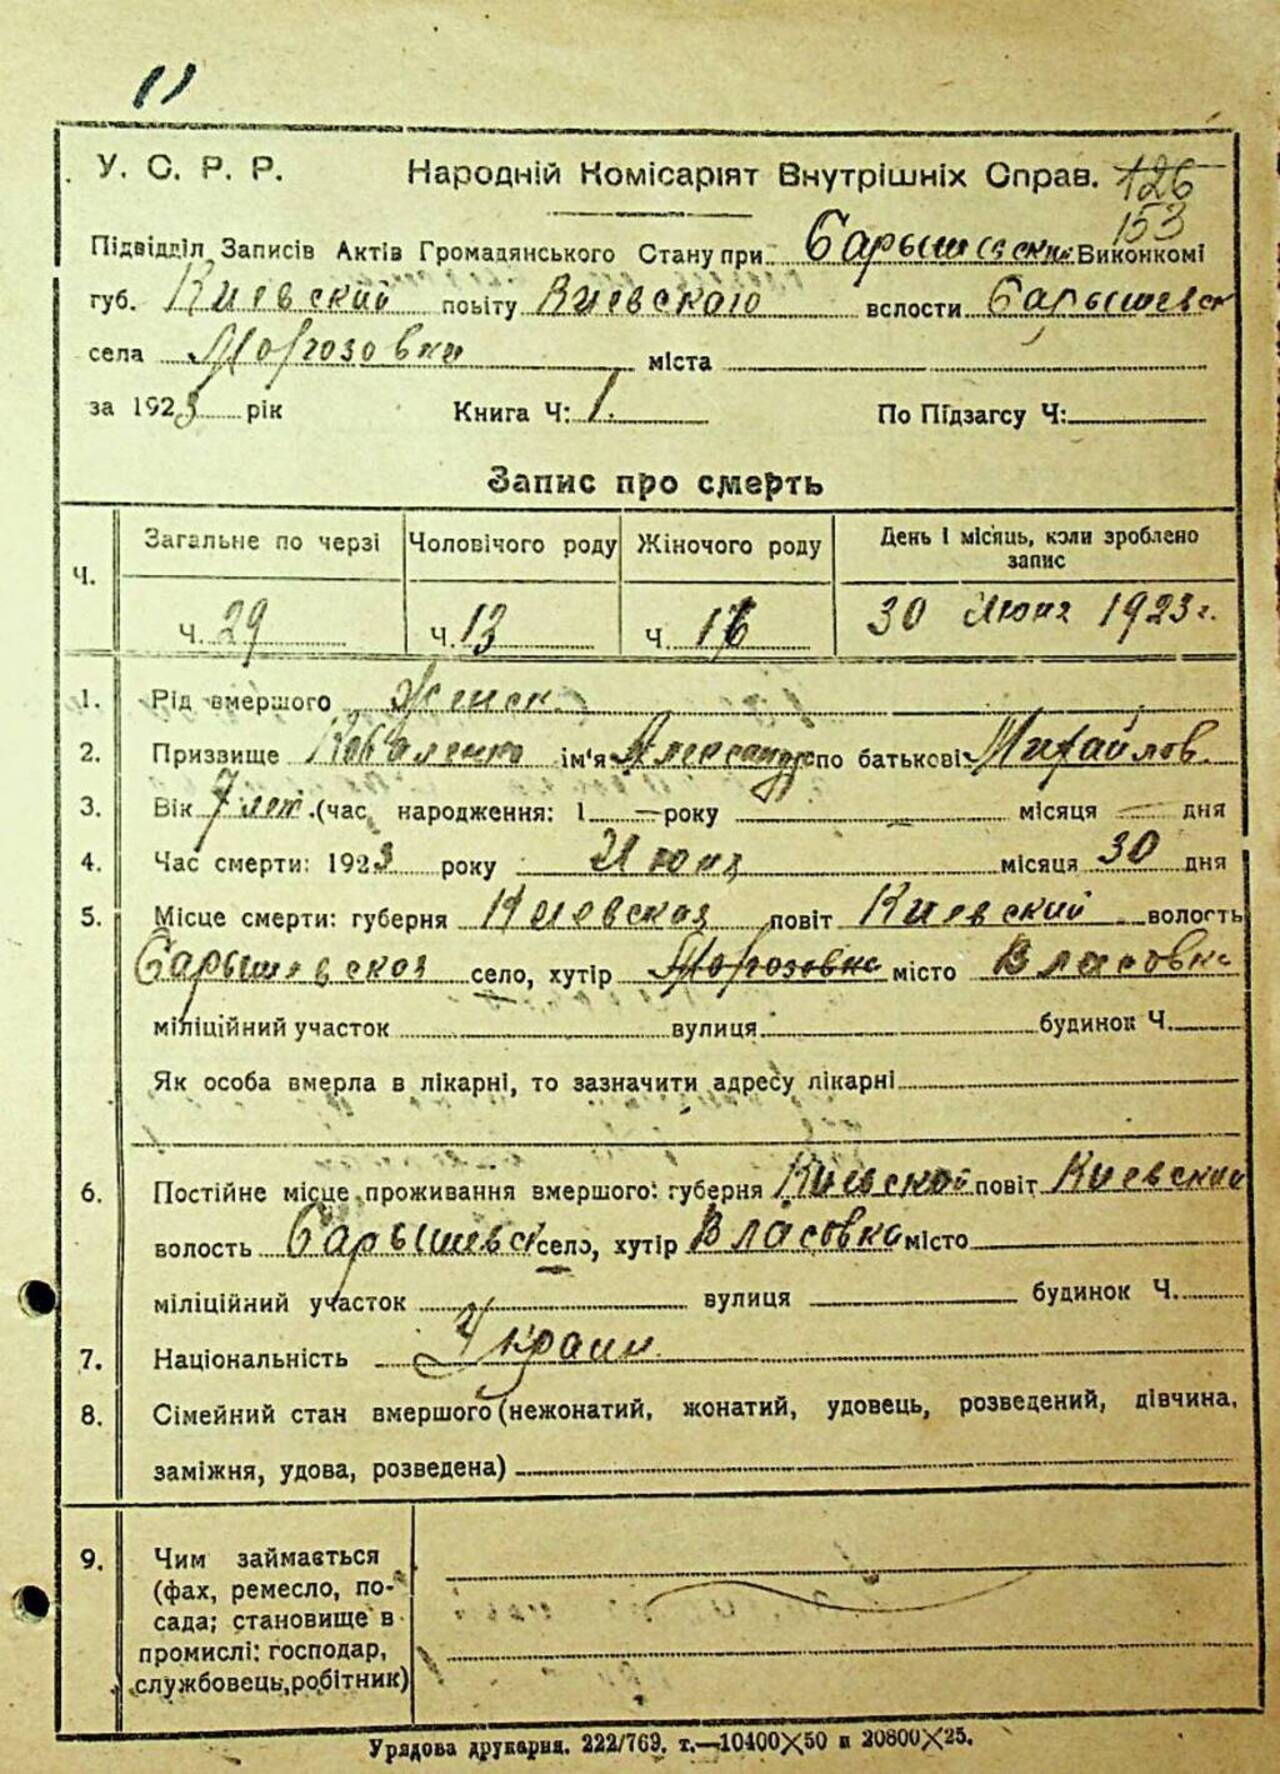 11
У. С. Р. Р. Народній Комісаріят Внутрішніх Справ. 126
153
Підвідділ Записів Актів Громадянського Стану при Барышевск Виконкомі
губ. Киевский повіту Киевского вслости Барышевск
села Морозовки міста
за 1923 рік Книга Ч: 1. По Підзагсу Ч:
Запис про смерть
Ч. Загальне по черзі Чоловічого роду Жіночого роду День і місяць, коли зроблено запис
ч. 29 ч. 13 ч. 16 30 Июня 1923 г.
1. Рід вмершого Женск.
2. Призвище Коваленко ім'я Александр по батькові Михайлов.
3. Вік 7 лет. (час народження: 1 — року місяця — дня
4. Час смерти: 1923 року Июня місяця 30 дня
5. Місце смерти: губерня Киевская повіт Киевский волость
Барышевская село, хутір Морозовка місто Власовка
міліційний участок вулиця будинок Ч.
Як особа вмерла в лікарні, то зазначити адресу лікарні
6. Постійне місце проживання вмершого: губерня Киевской повіт Киевский
волость Барышевск село, хутір Власовка місто
міліційний участок вулиця будинок Ч.
7. Національність Украин.
8. Сімейний стан вмершого (нежонатий, жонатий, удовець, розведений, дівчина,
заміжня, удова, розведена)
9. Чим займається
(фах, ремесло, по-
сада; становище в
промислі: господар,
службовець, робітник)
Урядова друкарня. 222/769. т.—10400X50 и 20800X25.